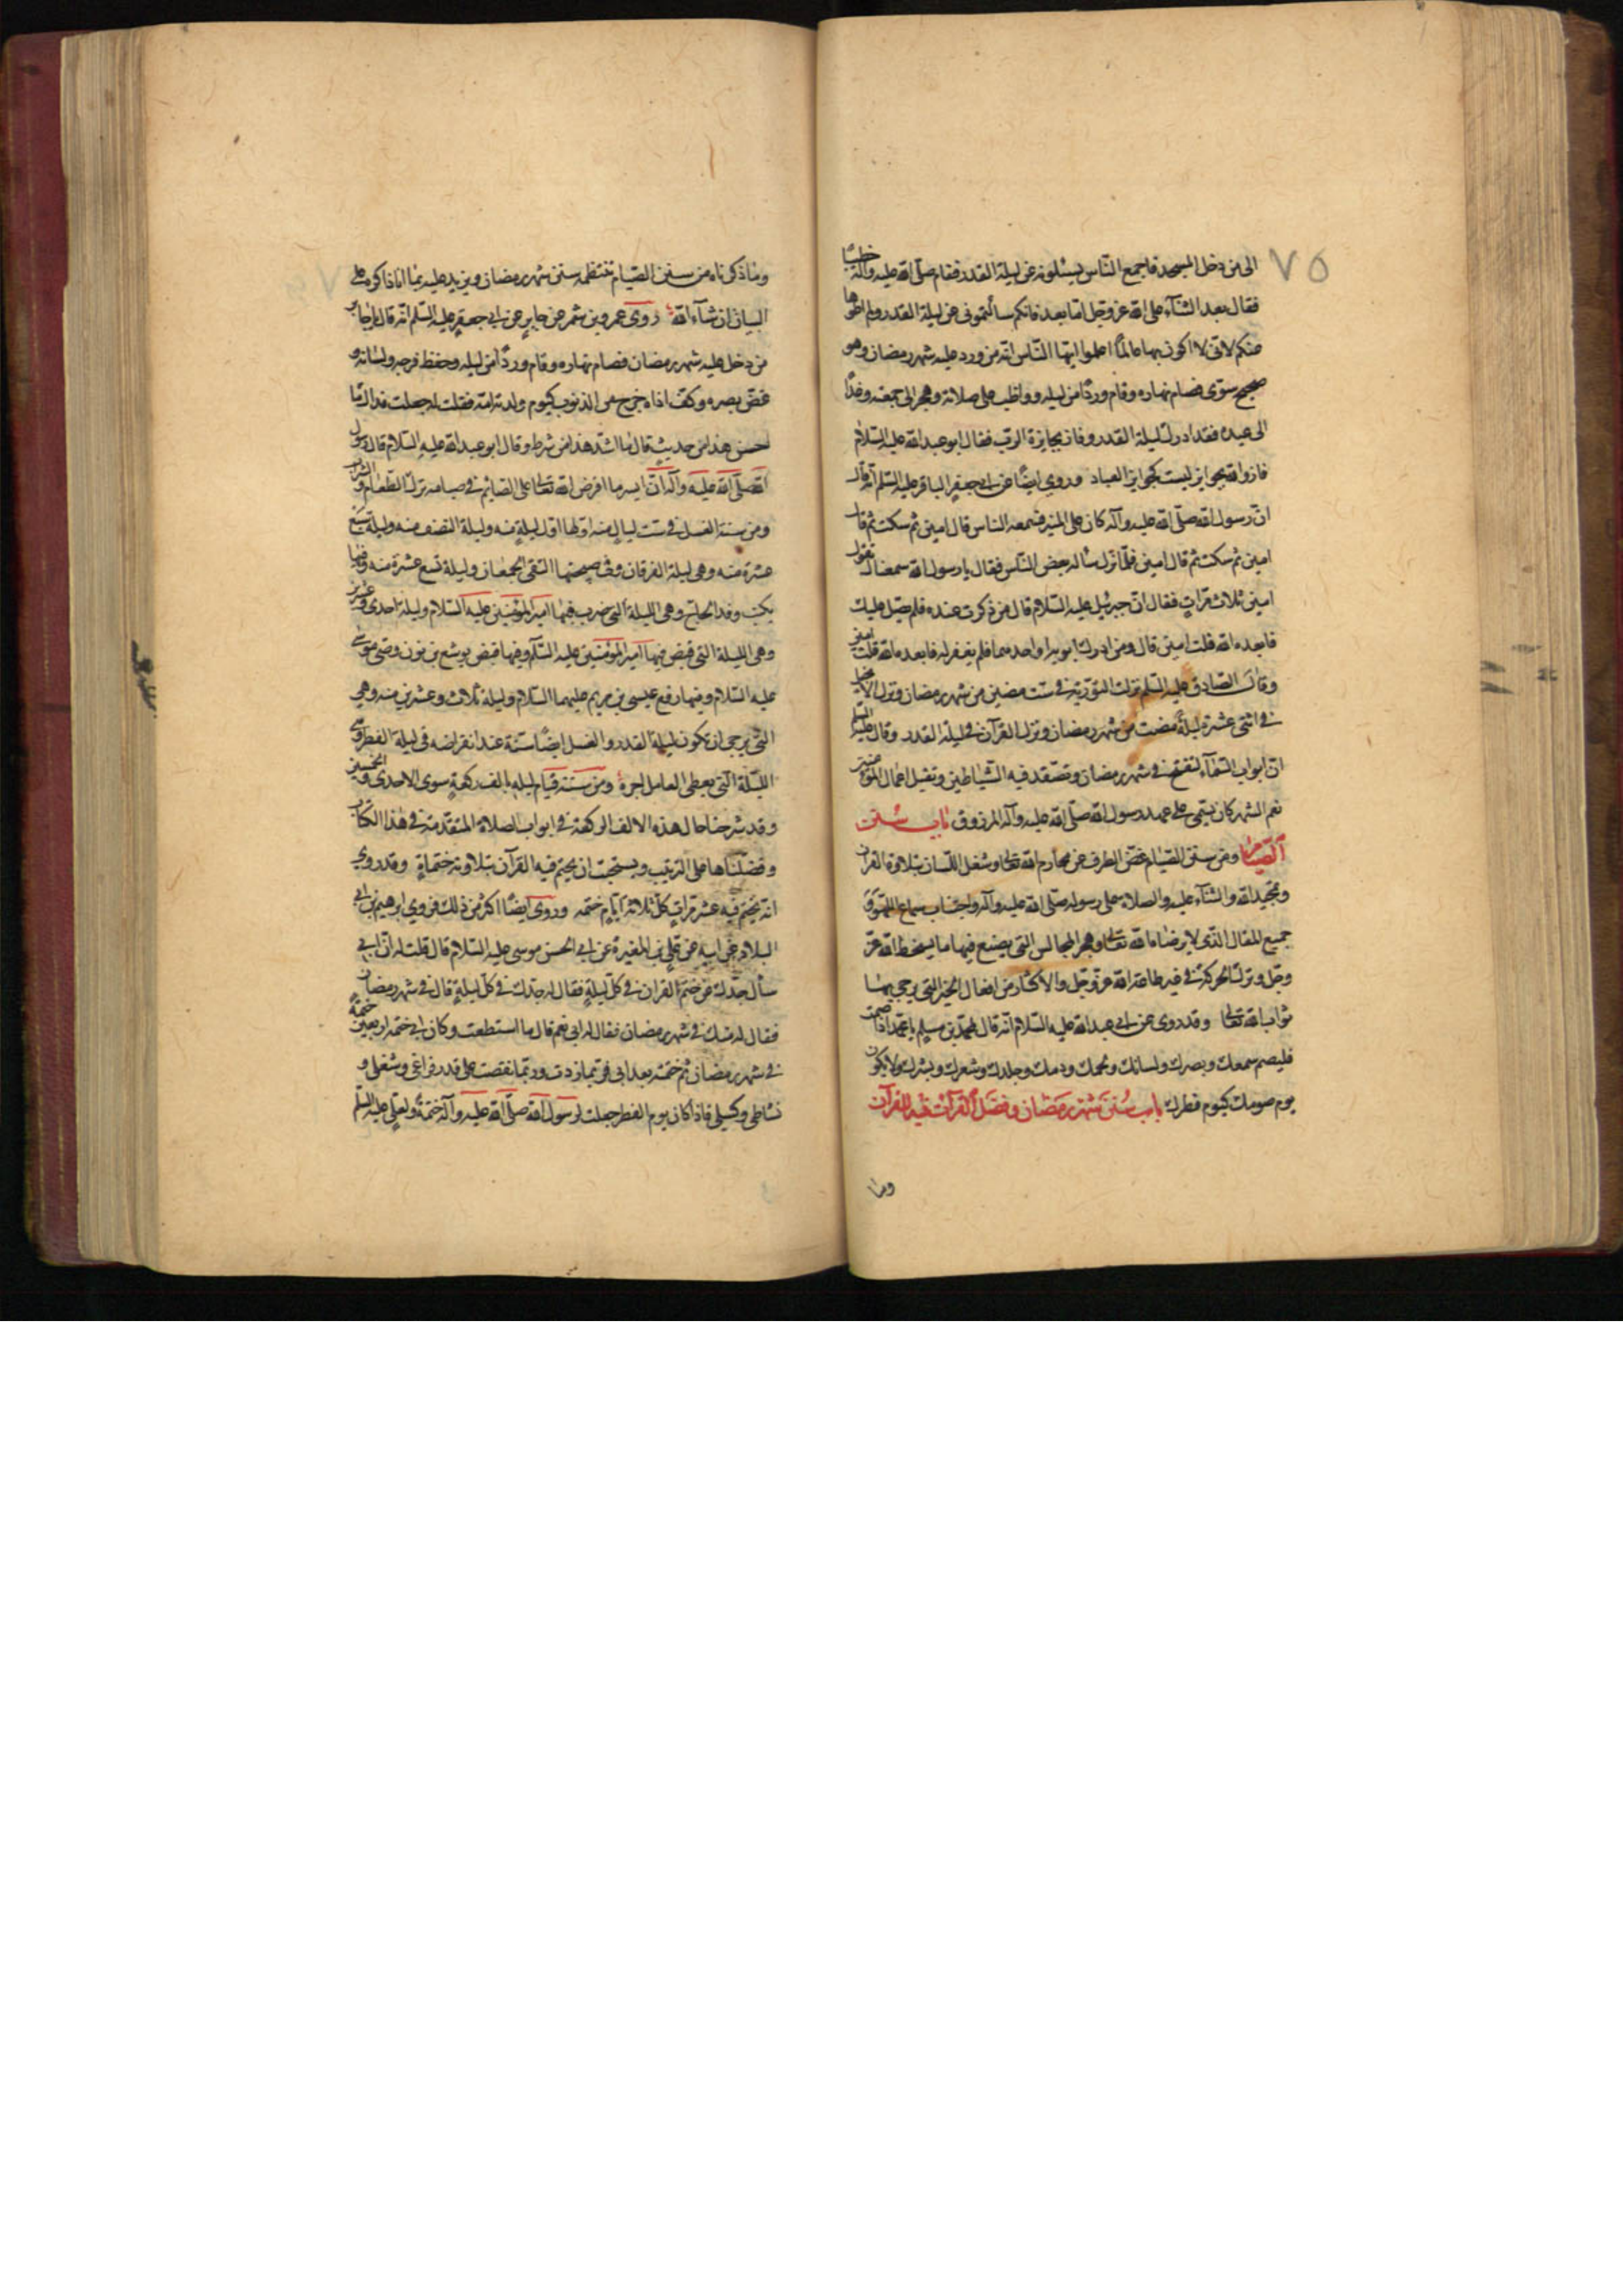 ٧٥
الى من دخل المسجد فاجمع الناس يسئلونه عن ليلة القدر فقام صلّى الله عليه وآله خطيبًا
فقال بعد الثنآء على الله عز وجل امّا بعد فانكم سألتمونى عن ليلة القدر ولم اطوها
عنكم لانى لا اكون بها عالمًا اعلموا ايها النّاس انه من ورد عليه شهر رمضان وهو
صحيح سوّى فصام نهاره وقام وردًا من ليله وواظب على صلاته وهجر الى جمعته وغدا
الى عيده فقد ادرك ليلة القدر وفاز بجايزة الربّ فقال ابو عبد الله عليه السّلام
فازوا والله بجوايز ليست كجوايز العباد وروى ايضًا عن ابى جعفر الباقر عليه السّلم انّه قال
انّ رسول الله صلّى الله عليه وآله كان على المنبر فسمعه الناس قال امين ثم سكت ثم قال
امين ثم سكت ثم قال امين فلمّا نزل سأله بعض النّاس فقال يا رسول الله سمعناك تقول
امين ثلاث مرّاتٍ فقال انّ جبرئيل عليه السّلام قال من ذكرت عنده فلم يصلّ عليك
فابعده الله قلت امين قال ومن ادرك ابويه او احدهما فلم يغفر له فابعده الله قلت امين
وقال الصّادق عليه السّلم نزلت التورية فى ستّ مضين من شهر رمضان ونزل الانجيل
فى اثنتى عشرة ليلةً مضت من شهر رمضان ونزل القرآن فى ليلة القدر وقال عليه السلم
انّ ابواب السّمآء لتفتح فى شهر رمضان وتصفّد فيه الشّياطين وتقبل اعمال المؤمنين
نعم الشهر كان يسمّى على عهد رسول الله صلّى الله عليه وآله المرزوق باب سنن
الصّيام ومن سنن الصّيام غضّ الطرف عن محارم الله تعالى وشغل اللّسان بتلاوة القرآن
وتمجيد الله والثنآء عليه والصلاة على رسوله صلّى الله عليه وآله واجتناب سماع اللهو و
جميع المقال الذّى لا يرضاه الله تعالى وهجر المجالس التى يصنع فيها ما يسخط الله عزّ
وجلّ وترك الحركة فى غير طاعة الله عزّ وجلّ والاكثار من افعال الخير التى يرجى بها
ثواب الله تعالى وقد روى عن ابى عبد الله عليه السّلام انّه قال لمحمّد بن مسلم يا محمّد اذا صمت
فليصم سمعك وبصرك ولسانك ولحمك ودمك وجلدك وشعرك وبشرك ولا يكون
يوم صومك كيوم فطرك باب سنن شهر رمضان وفضل القرآن فيه القرآن
وما
وما ذكرناه من سنن الصّيام تنتظمه سنن شهر رمضان ويزيد عليه بما انا ذاكره على
البيان ان شآء الله روى عمرو بن شمر عن جابرٍ عن ابى جعفر عليه السّلم انّه قال يا جابر
من دخل عليه شهر رمضان فصام نهاره وقام وردًا من ليله وحفظ فرجه ولسانه و
غضّ بصره وكفّ اذاه خرج من الذنوب كيوم ولدته امّه فقلت له جعلت فداك ما
احسن هذا من حديثٍ قال ما اشدّ هذا من شرط وقال ابو عبد الله عليه السّلام قال رسول
الله صلّى الله عليه وآله انّ ايسر ما افرض الله تعالى على الصّائم فى صيامه ترك الطّعام والشراب
ومن سننه الغسل فى ستّ ليالٍ منه اوّلها اوّل ليلةٍ منه وليلة النّصف منه وليلة سبع
عشرة منه وهى ليلة الفرقان وفى صبيحتها التقى الجمعان وليلة تسع عشرة منه وفيها
يكتب وفد الحاجّ وهى الليلة التى ضرب فيها امير المؤمنين عليه السّلام وليلة احدى وعشرين
وهى الليلة التى قبض فيها امير المؤمنين عليه السّلم وفيها قبض يوشع بن نون وصىّ موسى
عليه السّلام وفيها رفع عيسى بن مريم عليهما السّلام وليلة ثلاث وعشرين منه وهى
التى يرجى ان تكون ليلة القدر والغسل ايضًا سنّة عند انقراضه فى ليلة الفطر وهى
الليّلة الّتى يعطى العامل اجره ومن سننه قيام ليله بالف ركعةٍ سوى الاحدى والخمسين
وقد شرحنا حال هذه الالف الركعة فى ابواب الصلاة المتقدّمة فى هذا الكتاب
وفصّلناها على الترتيب ويستحبّ ان يختم فيه القرآن بتلاوته ختماتٍ وقد روى
انّه يختم فيه عشر مرّاتٍ كلّ ثلاثة ايّامٍ ختمه وروى ايضًا اكثر من ذلك فروى ابرهيم بن ابى
البلاد عن ابيه عن علىّ بن المغيرة عن ابى الحسن موسى عليه السّلام قال قلت له انّ ابى
سأل جدّك عن ختم القرآن فى كلّ ليلةٍ فقال له جدّك فى كلّ ليلةٍ قال فى شهر رمضان
فقال له جدّك فى شهر رمضان فقال له ابى نعم قال ما استطعت وكان ابى ختمه اربعين ختمةً
فى شهر رمضان ثم ختمته بعد ابى فربّما زدت وربّما نقصت على قدر فراغى وشغلى و
نشاطى وكسلى فاذا كان يوم الفطر جعلت لرسول الله صلّى الله عليه وآله ختمةً ولعلىٍّ عليه السّلم